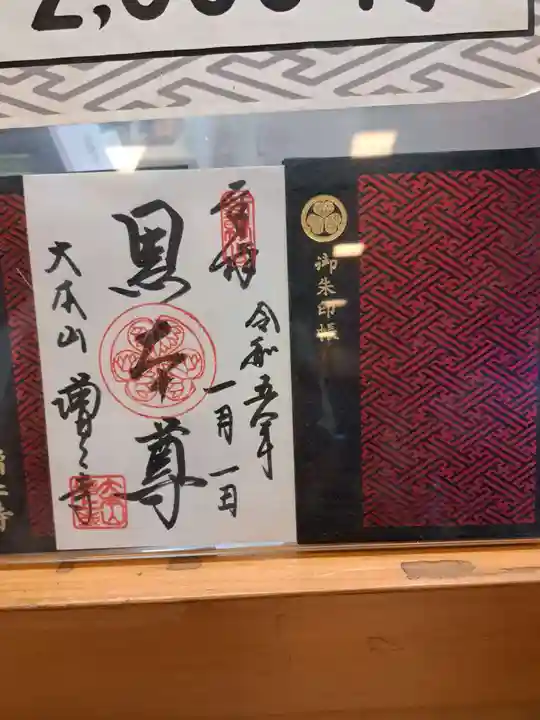 2,000円
奉拝
令和五年
一月一日
黒本尊
大本山 増上寺
御朱印帳
増上寺